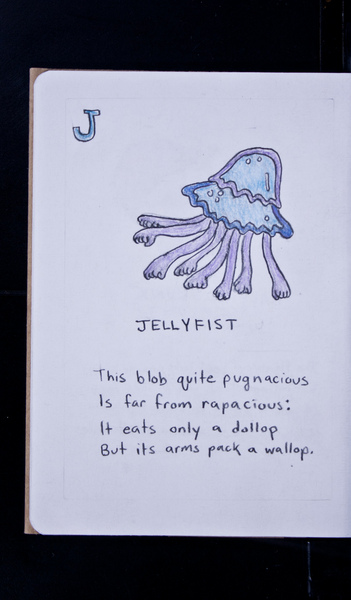 J
JELLYFIST
This blob quite pugnacious
Is far from rapacious:
It eats only a dollop
But its arms pack a wallop.